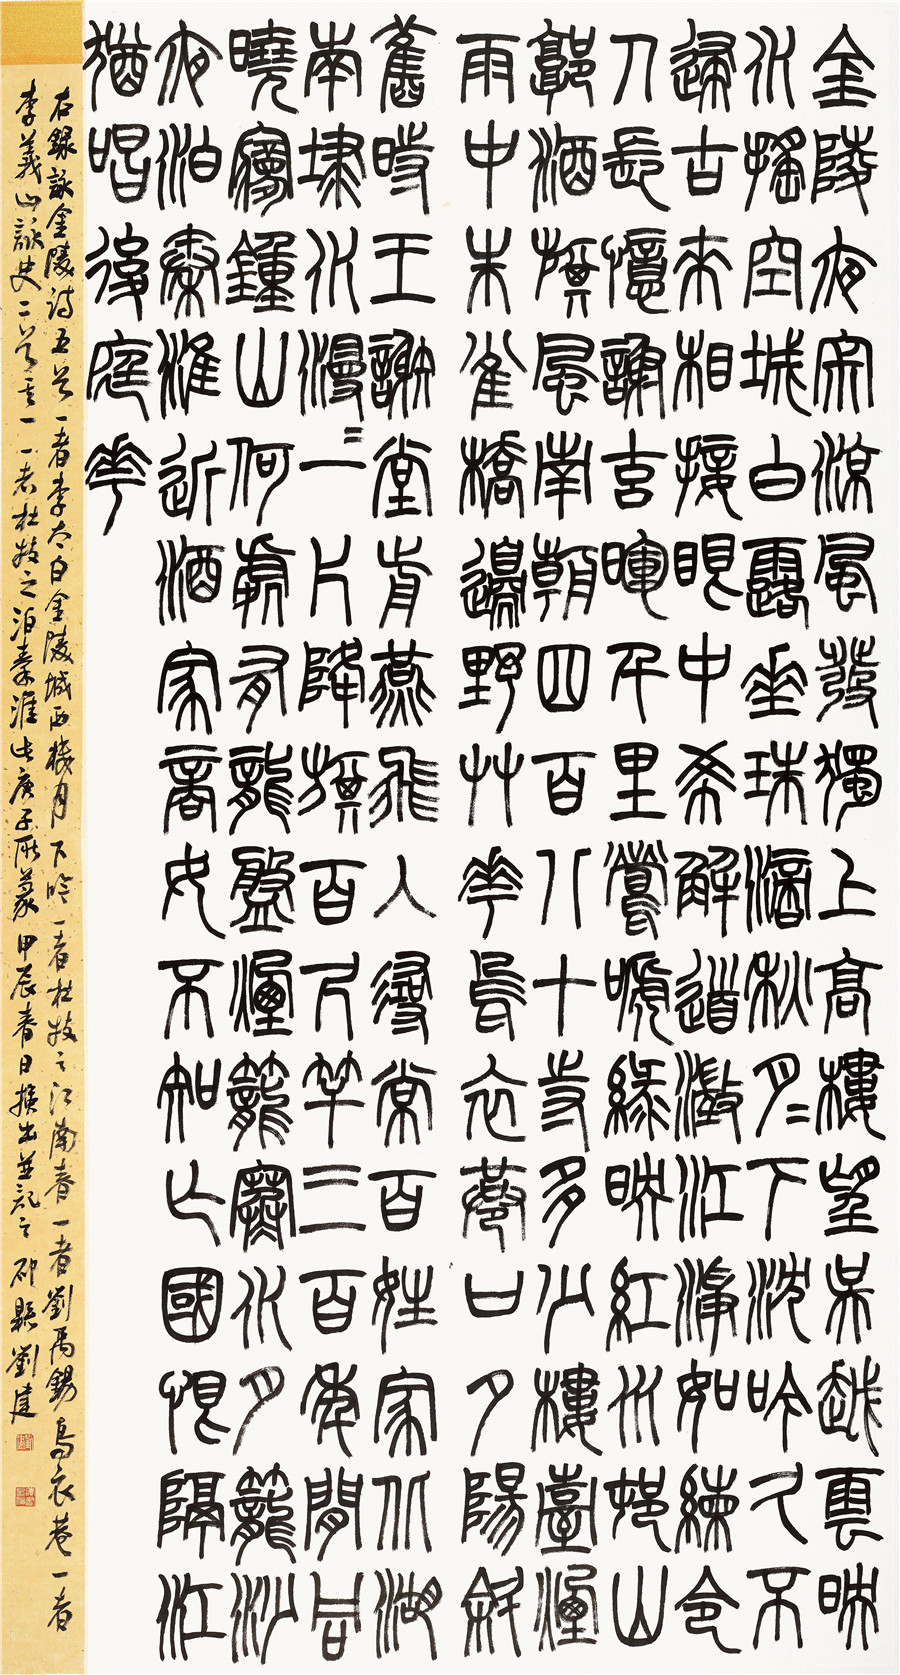 金陵夜寂涼風發獨上高樓望吳越雲映
水搖空城白露垂珠滴秋月〻下沈吟久不
歸古來相接眼中希解道澂江淨如練令
人長憶謝玄暉千里鶯啼綠映紅水邨山
郭酒旗風南朝四百八十寺多少樓臺煙
雨中朱雀橋邊野艸花烏衣巷口夕陽斜
舊時王謝堂前燕飛入尋常百姓家北湖
南埭水漫〻一片降旗百尺竿三百年間同
曉夢鍾山何處有龍盤煙籠寒水月籠沙
夜泊秦淮近酒家商女不知亡國恨隔江
猶唱後庭花
右錄詠金陵詩五首一者李太白金陵城西樓月下吟一者杜牧之江南春一者劉禹錫烏衣巷一者
李義山詠史二首之一一者杜牧之泊秦淮此庚子所篆甲辰春日撿出並記之劉建